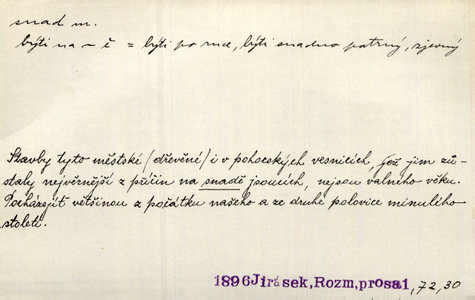 snad m.
býti na ~ě = býti po ruce, býti snadno patrný, zjevný
Stavby tyto městské (dřevěné) i v pohorských vesnicích, jež jim zů-
staly nejvěrnější z příčin na snadě jsoucích, nejsou valného věku.
Pocházejíť většinou z počátku našeho a ze druhé polovice minulého
století.
1896 Jirásek, Rozm, prosa1, 72, 30